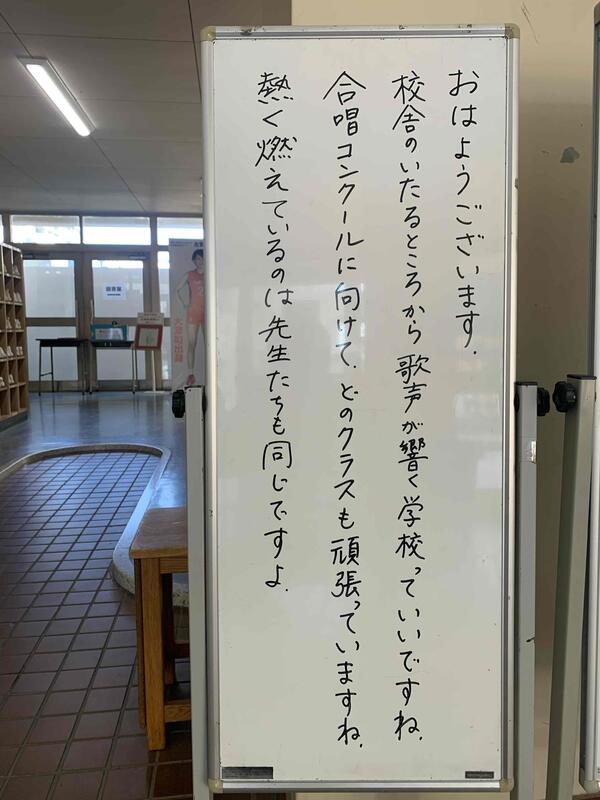 おはようございます.
校舎のいたるところから歌声が響く学校っていいですね.
合唱コンクールに向けて.どのクラスも頑張っていますね.
熱く燃えているのは先生たちも同じですよ.